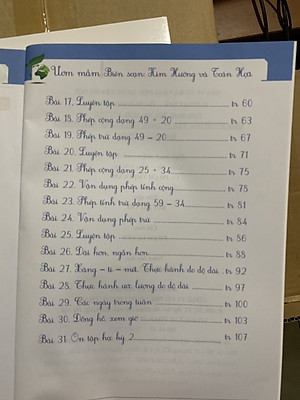 Ươm mầm, Biên soạn: Kim Hường và Toán Họa
Bài 17. Luyện tập tr 60
Bài 18. Phép cộng dạng 49 + 20 tr 63
Bài 19. Phép trừ dạng 49 – 20 tr 67
Bài 20. Luyện tập tr 71
Bài 21. Phép cộng dạng 25 + 34 tr 75
Bài 22. Vận dụng phép tính cộng tr 78
Bài 23. Phép tính trừ dạng 59 – 34 tr 81
Bài 24. Vận dụng phép trừ tr 84
Bài 25. Luyện tập tr 86
Bài 26. Dài hơn, ngắn hơn tr 88
Bài 27. Xăng – ti – mét. Thực hành đo độ dài tr 92
Bài 28. Thực hành ước lượng đo độ dài tr 97
Bài 29. Các ngày trong tuần tr 100
Bài 30. Đồng hồ, xem giờ tr 103
Bài 31. Ôn tập học kỳ 2 tr 107